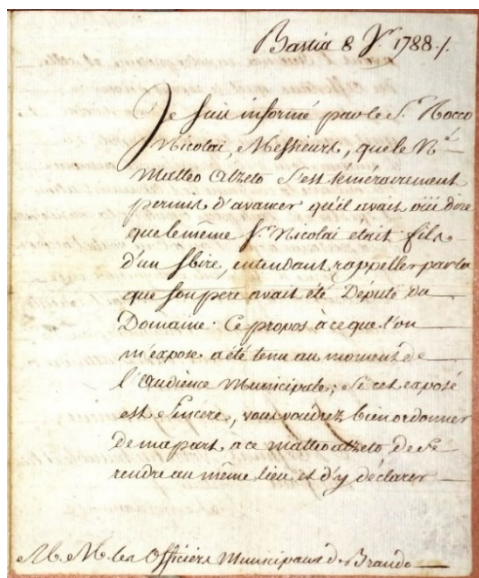 Bastia 8 Jr. 1788./.
Je suis informé par le Sr. Rocco
Nicolai, Messieurs, que le Né
Matteo alzeto s'est témérairement
permis d'avancer qu'il avait oüi dire
que le même Sr. Nicolai etait fils
d'un sbire, entendant rappeller par la
que son pere avait été Député du
Domaine. Ce propos à ce que l'on
m'expose a été tenu au moment de
l'audience Municipale; Si cet exposé
est sincere, vous voudrez bien ordonner
de ma part, a ce matteo alzeto de se
rendre au même lieu et d'y déclarer
M. M. les Officiers Municipaux de Brando